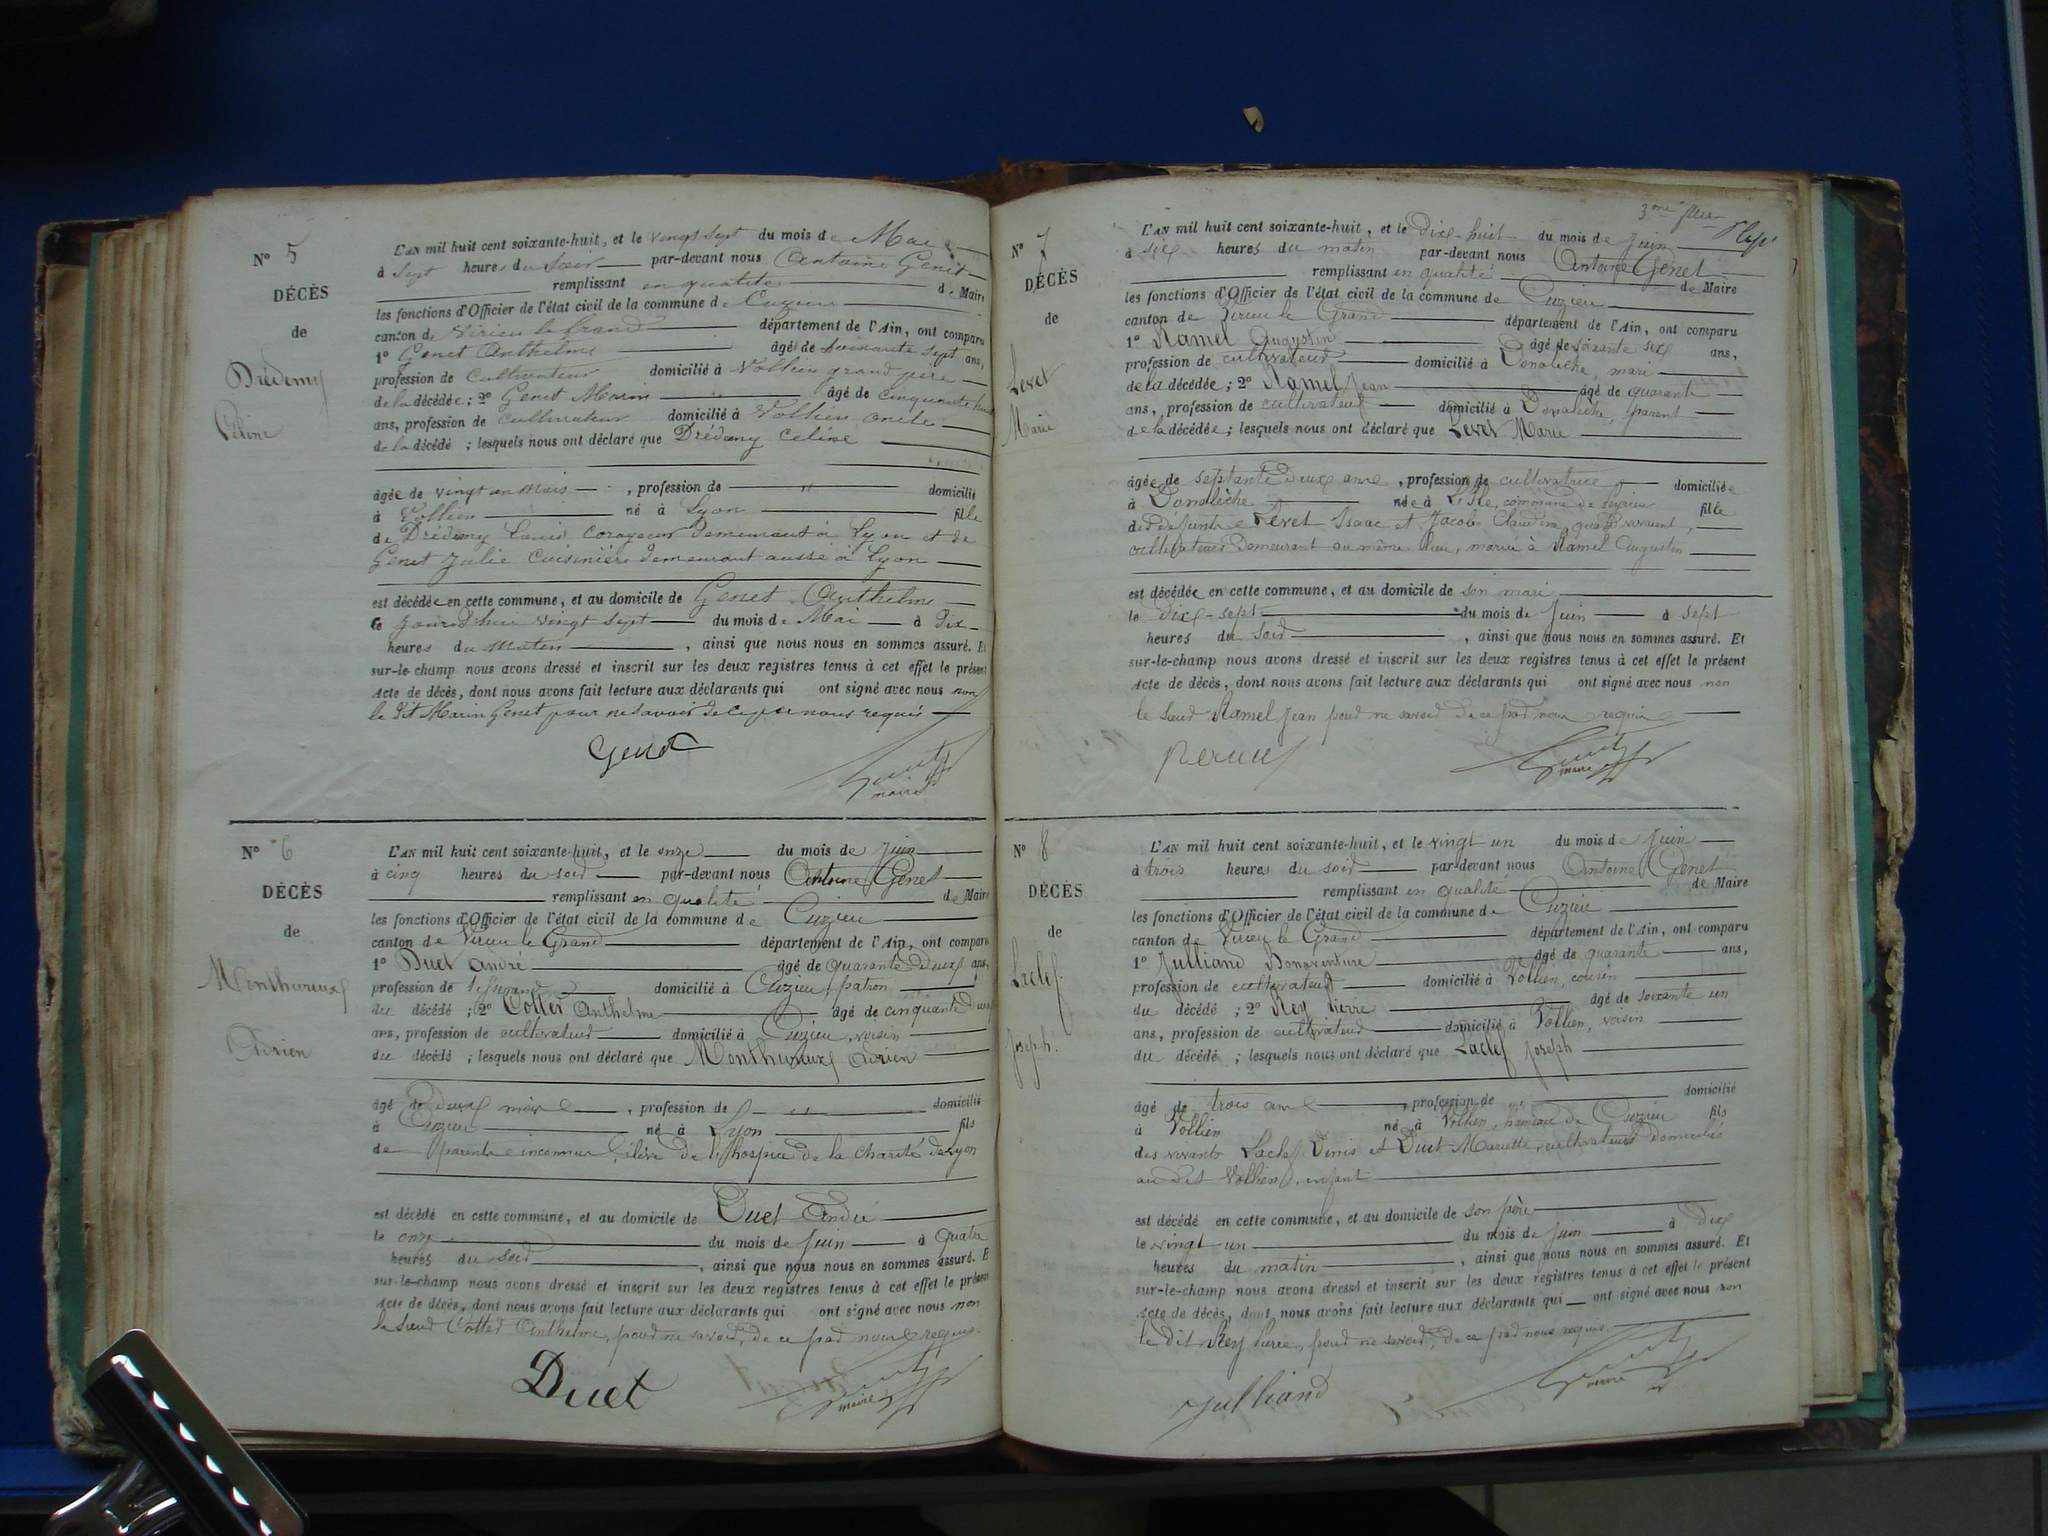 N° 5
DÉCÈS
de
Drédemy
Céline
L'AN mil huit cent soixante-huit, et le vingt sept du mois de Mai
à sept heures du soir par-devant nous Antoine Genet
remplissant en qualité de Maire
les fonctions d'Officier de l'état civil de la commune de Cuzieu
canton de Virieu le Grand département de l'Ain, ont comparu
1° Genet Anthelme âgé de soixante sept ans,
profession de cultivateur domicilié à Vollien grand père
de la décédée ; 2° Genet Marin âgé de cinquante huit
ans, profession de cultivateur domicilié à Vollien oncle
de la décédé ; lesquels nous ont déclaré que Drédemy Celine
âgée de vingt un mois , profession de " domicilié
à Vollien né à Lyon fille
de Drédemy Louis demeurant à Lyon et de
Genet Julie Cuisinière demeurant aussi à Lyon
est décédée en cette commune, et au domicile de Genet Anthelme
le jourd'hui vingt sept du mois de Mai à dix
heures du matin , ainsi que nous nous en sommes assuré. Et
sur-le-champ nous avons dressé et inscrit sur les deux registres tenus à cet effet le présent
acte de décès, dont nous avons fait lecture aux déclarants qui ont signé avec nous non
le dit Marin Genet pour ne savoir de ce par nous requis
Genet
Genet
maire
N° 6
DÉCÈS
de
Monthureux
Adrien
L'AN mil huit cent soixante-huit, et le onze du mois de Juin
à cinq heures du soir par-devant nous Antoine Genet
remplissant en qualité de Maire
les fonctions d'Officier de l'état civil de la commune de Cuzieu
canton de Virieu le Grand département de l'Ain, ont comparu
1° Duet André âgé de quarante deux ans,
profession de tisserand domicilié à Cuzieu, patron
du décédé ; 2° Cottet Anthelme âgé de cinquante deux
ans, profession de cultivateur domicilié à Cuzieu, voisin
du décédé ; lesquels nous ont déclaré que Monthureux Adrien
âgé de deux mois , profession de " domicilié
à Cuzieu né à Lyon fils
de parents inconnus, élève de l'hospice de la charité de Lyon
est décédé en cette commune, et au domicile de Duet André
le onze du mois de Juin à quatre
heures du soir , ainsi que nous nous en sommes assuré. Et
sur-le-champ nous avons dressé et inscrit sur les deux registres tenus à cet effet le présent
acte de décès, dont nous avons fait lecture aux déclarants qui ont signé avec nous non
le sieur Cottet Anthelme, pour ne savoir, de ce par nous requis.
Duet
Genet
maire
3me
N° 7
DÉCÈS
de
Levet
Marie
L'AN mil huit cent soixante-huit, et le dix-huit du mois de Juin
à six heures du matin par-devant nous Antoine Genet
remplissant en qualité de Maire
les fonctions d'Officier de l'état civil de la commune de Cuzieu
canton de Virieu le Grand département de l'Ain, ont comparu
1° Ramel Augustin âgé de soixante six ans,
profession de cultivateur domicilié à Donalèche, mari
de la décédée ; 2° Ramel Jean âgé de quarante
ans, profession de cultivateur domicilié à Donalèche, parent
de la décédée ; lesquels nous ont déclaré que Levet Marie
âgée de septante deux ans , profession de cultivatrice domiciliée
à Donalèche née à Lisle, commune de fille
des défunts Levet Isaac et Jacob Claudine, quand vivaient,
cultivateurs demeurant au même lieu, mariée à Ramel Augustin
est décédée en cette commune, et au domicile de son mari
le dix-sept du mois de Juin à sept
heures du soir , ainsi que nous nous en sommes assuré. Et
sur-le-champ nous avons dressé et inscrit sur les deux registres tenus à cet effet le présent
acte de décès, dont nous avons fait lecture aux déclarants qui ont signé avec nous non
le sieur Ramel Jean pour ne savoir de ce par nous requis
Genet
maire
N° 8
DÉCÈS
de
Laclef
Joseph.
L'AN mil huit cent soixante-huit, et le vingt un du mois de Juin
à trois heures du soir par-devant nous Antoine Genet
remplissant en qualité de Maire
les fonctions d'Officier de l'état civil de la commune de Cuzieu
canton de Virieu le Grand département de l'Ain, ont comparu
1° Julliand Bonaventure âgé de quarante ans,
profession de cultivateur domicilié à Vollien, cousin
du décédé ; 2° Rey Pierre âgé de soixante un
ans, profession de cultivateur domicilié à Vollien, voisin
du décédé ; lesquels nous ont déclaré que Laclef Joseph
âgé de trois ans , profession de " domicilié
à Vollien né à Vollien, hameau de Cuzieu fils
des vivants Laclef Denis et Duet Mariette, cultivateurs domiciliés
au dit Vollien, enfant
est décédé en cette commune, et au domicile de son père
le vingt un du mois de Juin à dix
heures du matin , ainsi que nous nous en sommes assuré. Et
sur-le-champ nous avons dressé et inscrit sur les deux registres tenus à cet effet le présent
acte de décès, dont nous avons fait lecture aux déclarants qui ont signé avec nous non
le dit Rey Pierre, pour ne savoir, de ce par nous requis.
Julliand
Genet
maire